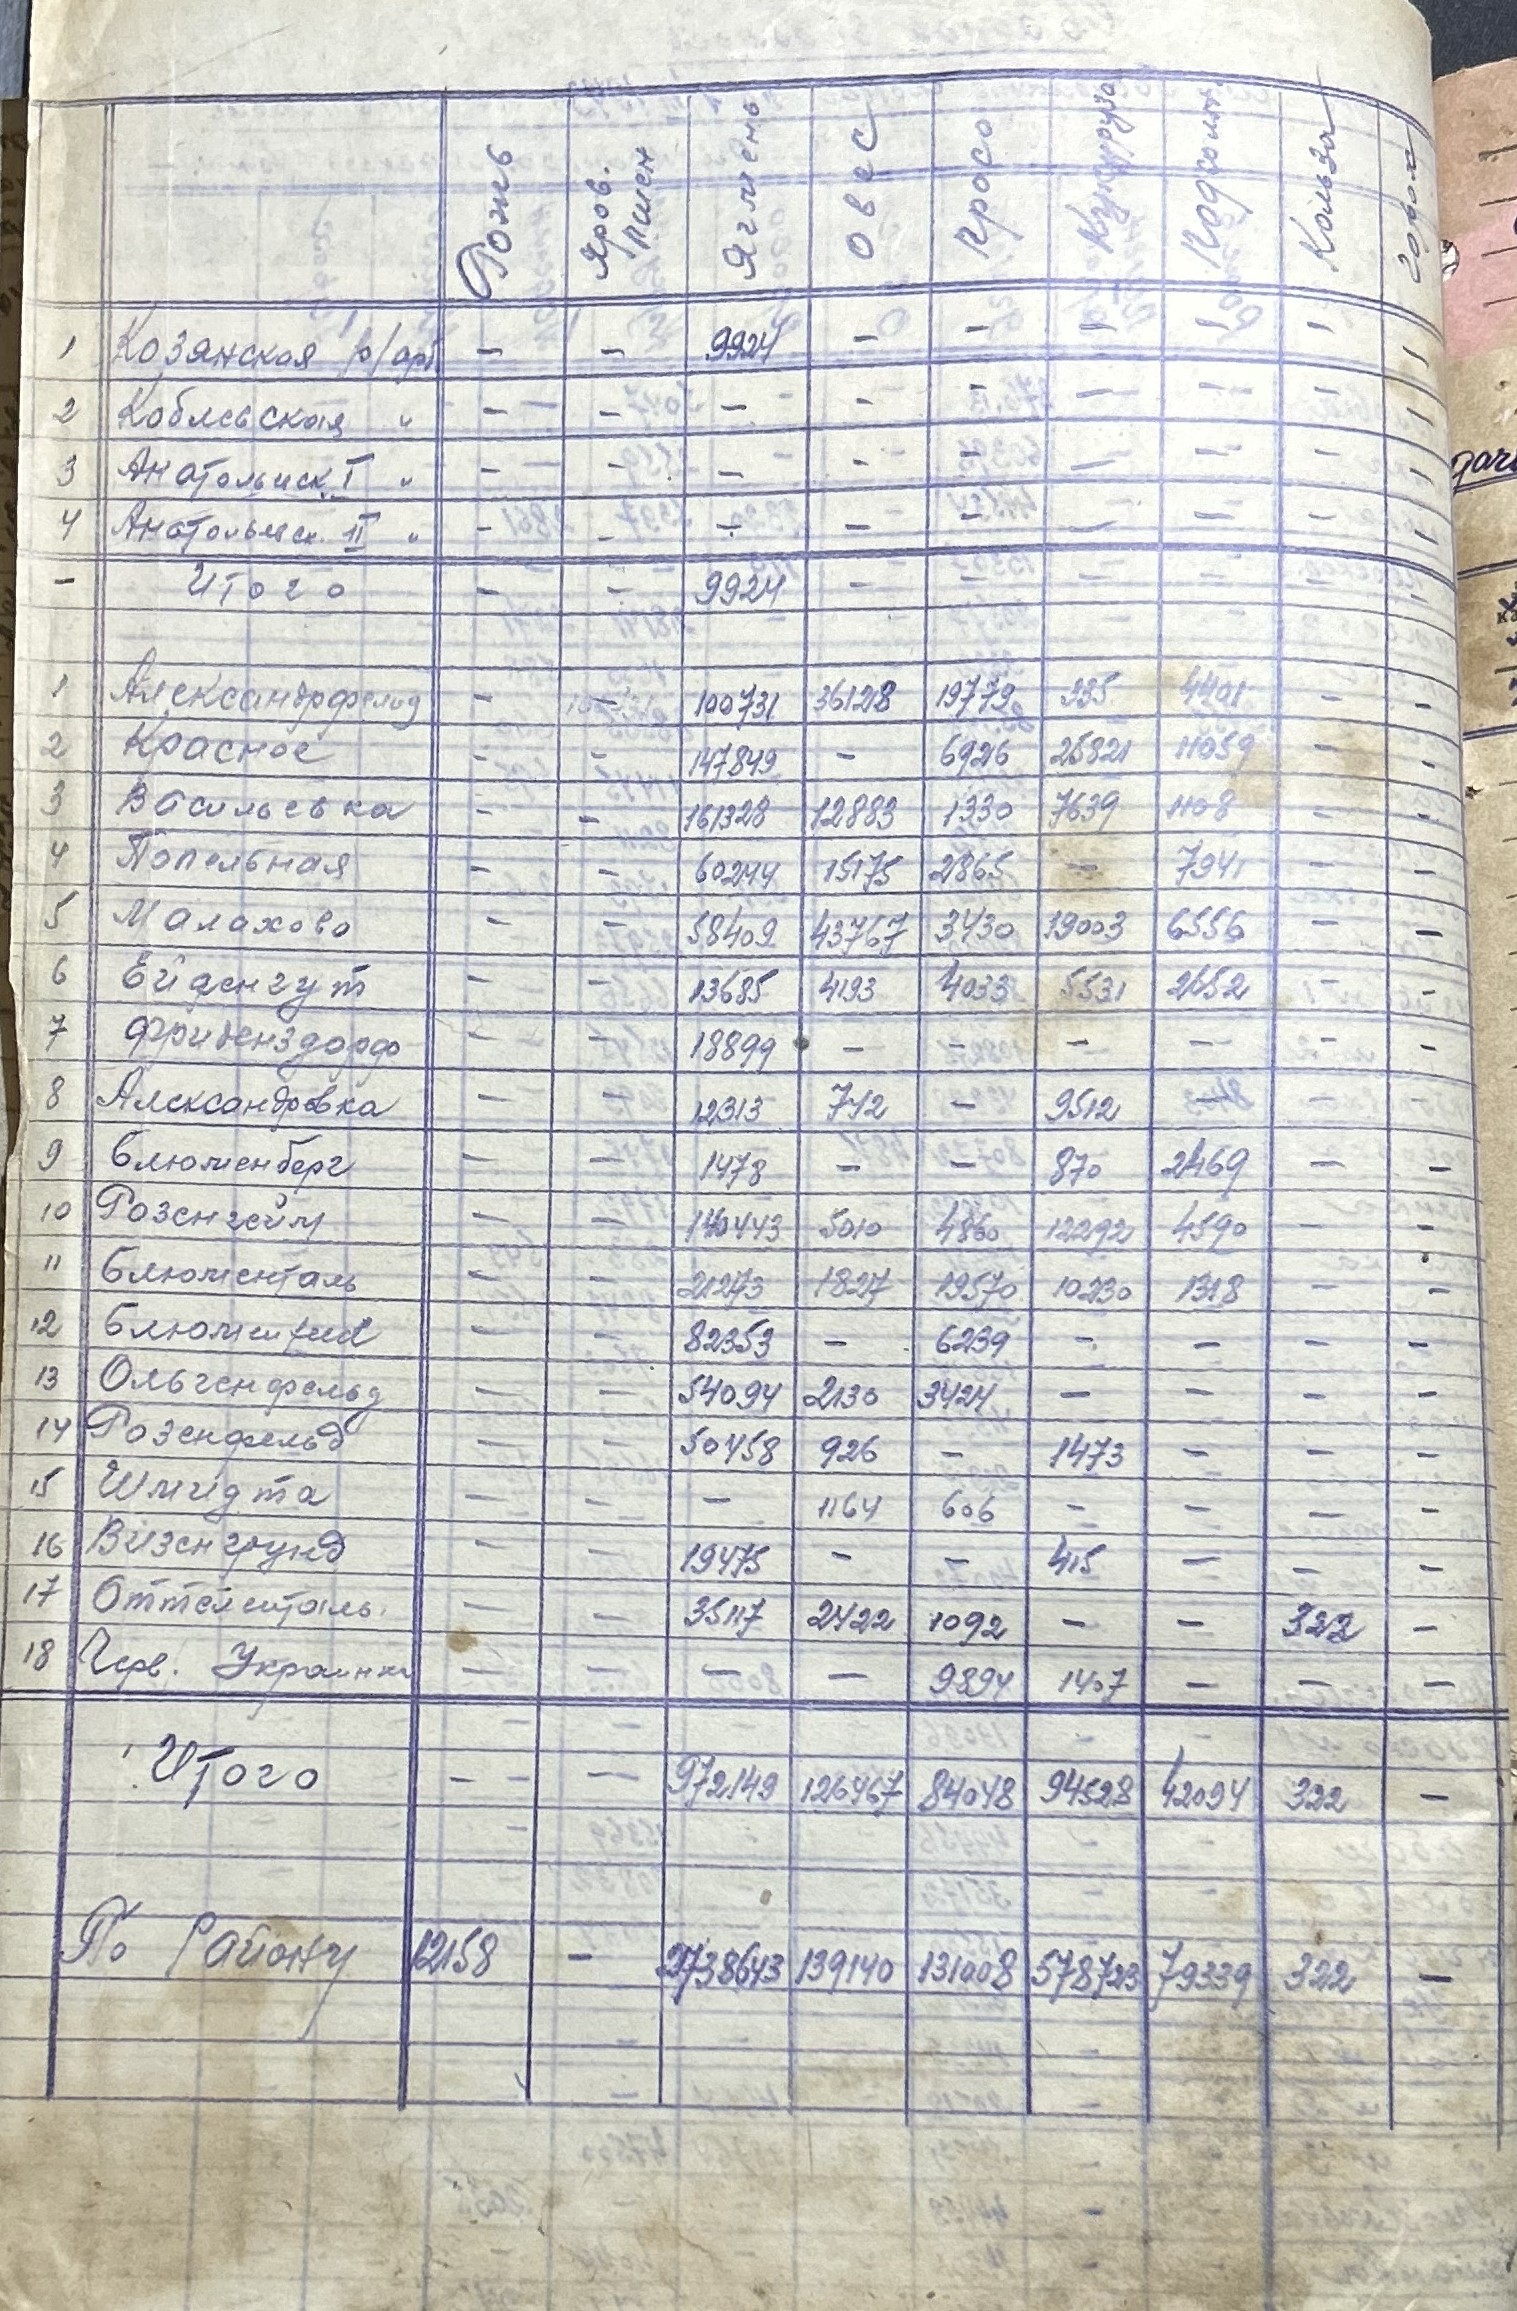 Рожь Яров. пшен Ячмень Овес Просо Кукуруза Подсолн. Кользa Горох
1 Козянская р/арт. — — 9924 — — — — — —
2 Коблевская " — — — — — — — — —
3 Анатольиск. I " — — — — — — — — —
4 Анатольиск. II " — — — — — — — — —
— Итого — — 9924 — — — — — —
1 Александрфельд — — 100731 36128 19779 335 4401 — —
2 Красное — — 147849 — 6926 25821 11059 — —
3 Васильевка — — 161328 12883 1330 7639 1108 — —
4 Попельная — — 60244 15175 2865 — 7941 — —
5 Малахово — — 58409 43767 3430 19003 6556 — —
6 Ейденгут — — 13685 4193 4033 5531 2652 — —
7 Фриденздорф — — 18899 — — — — — —
8 Александровка — — 12313 742 — 9512 — — —
9 Блюменберг — — 1478 — — 870 2469 — —
10 Розенгейм — — 140443 5010 4860 12292 4590 — —
11 Блюменталь — — 21273 1827 19570 10230 1318 — —
12 Блюменфел — — 82353 — 6239 — — — —
13 Ольгенфельд — — 54094 2130 3424 — — — —
14 Розенфельд — — 50458 926 — 1473 — — —
15 Шмидта — — — 1164 606 — — — —
16 Визенгрунд — — 19475 — — 415 — — —
17 Оттелинталь. — — 35117 2422 1092 — — 322 —
18 Черв. Украинка — — — — 9894 1407 — — —
Итого — — 972149 126467 84048 94528 42094 322 —
По Району 12158 — 2738643 139140 131008 578723 79339 322 —